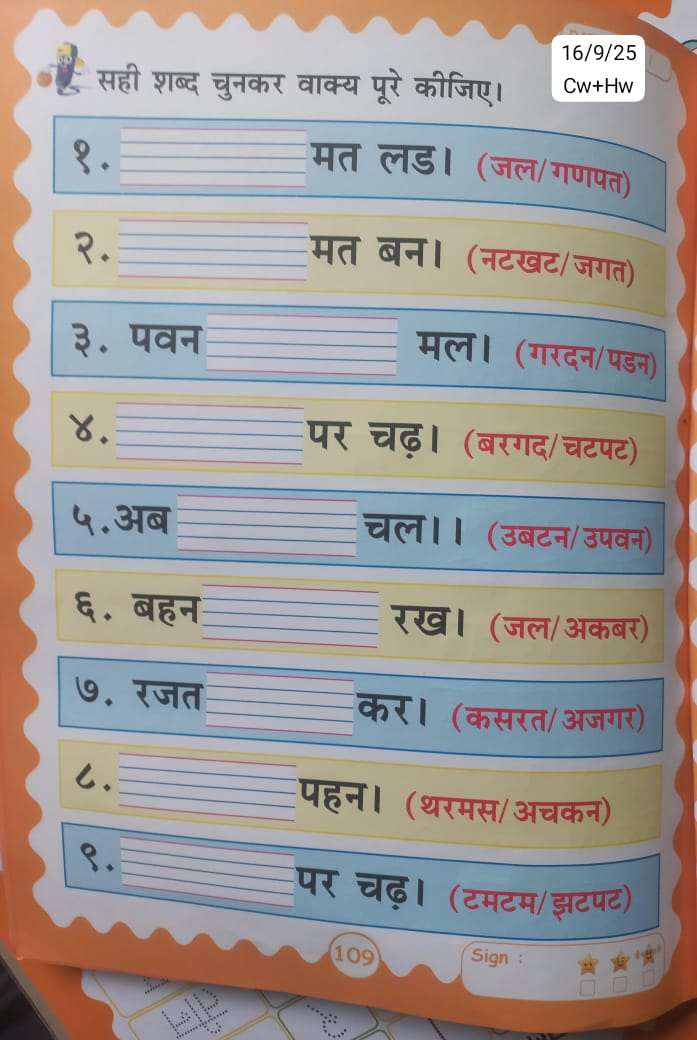 16/9/25
Cw+Hw
सही शब्द चुनकर वाक्य पूरे कीजिए।
१. मत लड। (जल/गणपत)
२. मत बन। (नटखट/जगत)
३. पवन मल। (गरदन/पडन)
४. पर चढ़। (बरगद/चटपट)
५.अब चल।। (उबटन/उपवन)
६. बहन रख। (जल/अकबर)
७. रजत कर। (कसरत/अजगर)
८. पहन। (थरमस/अचकन)
९. पर चढ़। (टमटम/झटपट)
109
Sign :